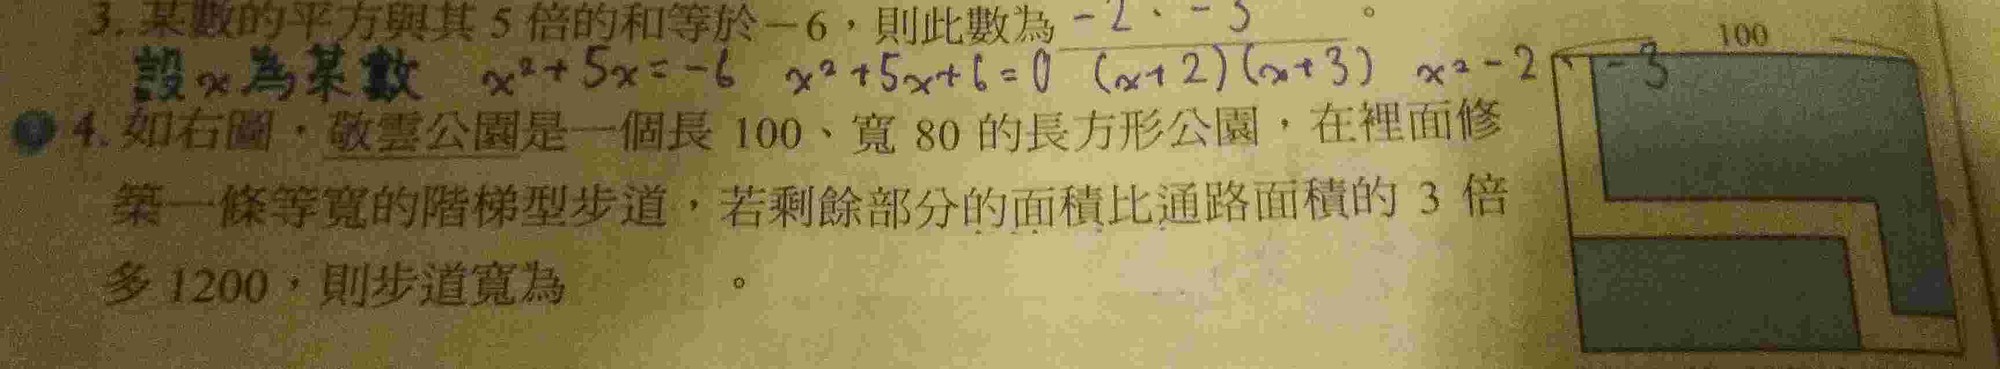 3. 某數的平方與其 5 倍的和等於－6，則此數為 -2、-3。
設x為某數 x²+5x=-6 x²+5x+6=0 (x+2)(x+3) x=-2、-3
100
4. 如右圖，敬雲公園是一個長 100、寬 80 的長方形公園，在裡面修
築一條等寬的階梯型步道，若剩餘部分的面積比通路面積的 3 倍
多 1200，則步道寬為　　　。